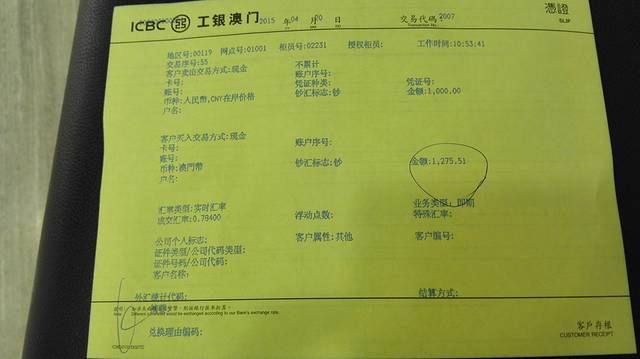 ICBC 工银澳门 2015 年 04 月 20 日 交易代码：2007 憑證
Transaction No. SLIP
地区号:00119 网点号:01001 柜员号:02231 授权柜员: 工作时间:10:53:41
交易序号:55 不累计
客户卖出交易方式:现金 账户序号:
卡号: 凭证种类: 凭证号:
账号: 钞汇标志:钞 金额:1,000.00
币种:人民幣,CNY在岸价格
户名:
客户买入交易方式:现金
卡号: 账户序号:
账号:
币种:澳門幣 钞汇标志:钞 金额:1,275.51
户名:
业务类型: 即期
汇率类型:实时汇率
成交汇率:0.78400 浮动点数: 特殊汇率:
公司个人标志: 客户属性:其他 客户编号:
证件类型/公司代码类型:
证件号码/公司代码:
客户名称:
外汇统计代码: 结算方式:
Different currencies would be exchanged according to our Bank's exchange rate.
兑换理由编码:
客戶存根
CUSTOMER RECEIPT